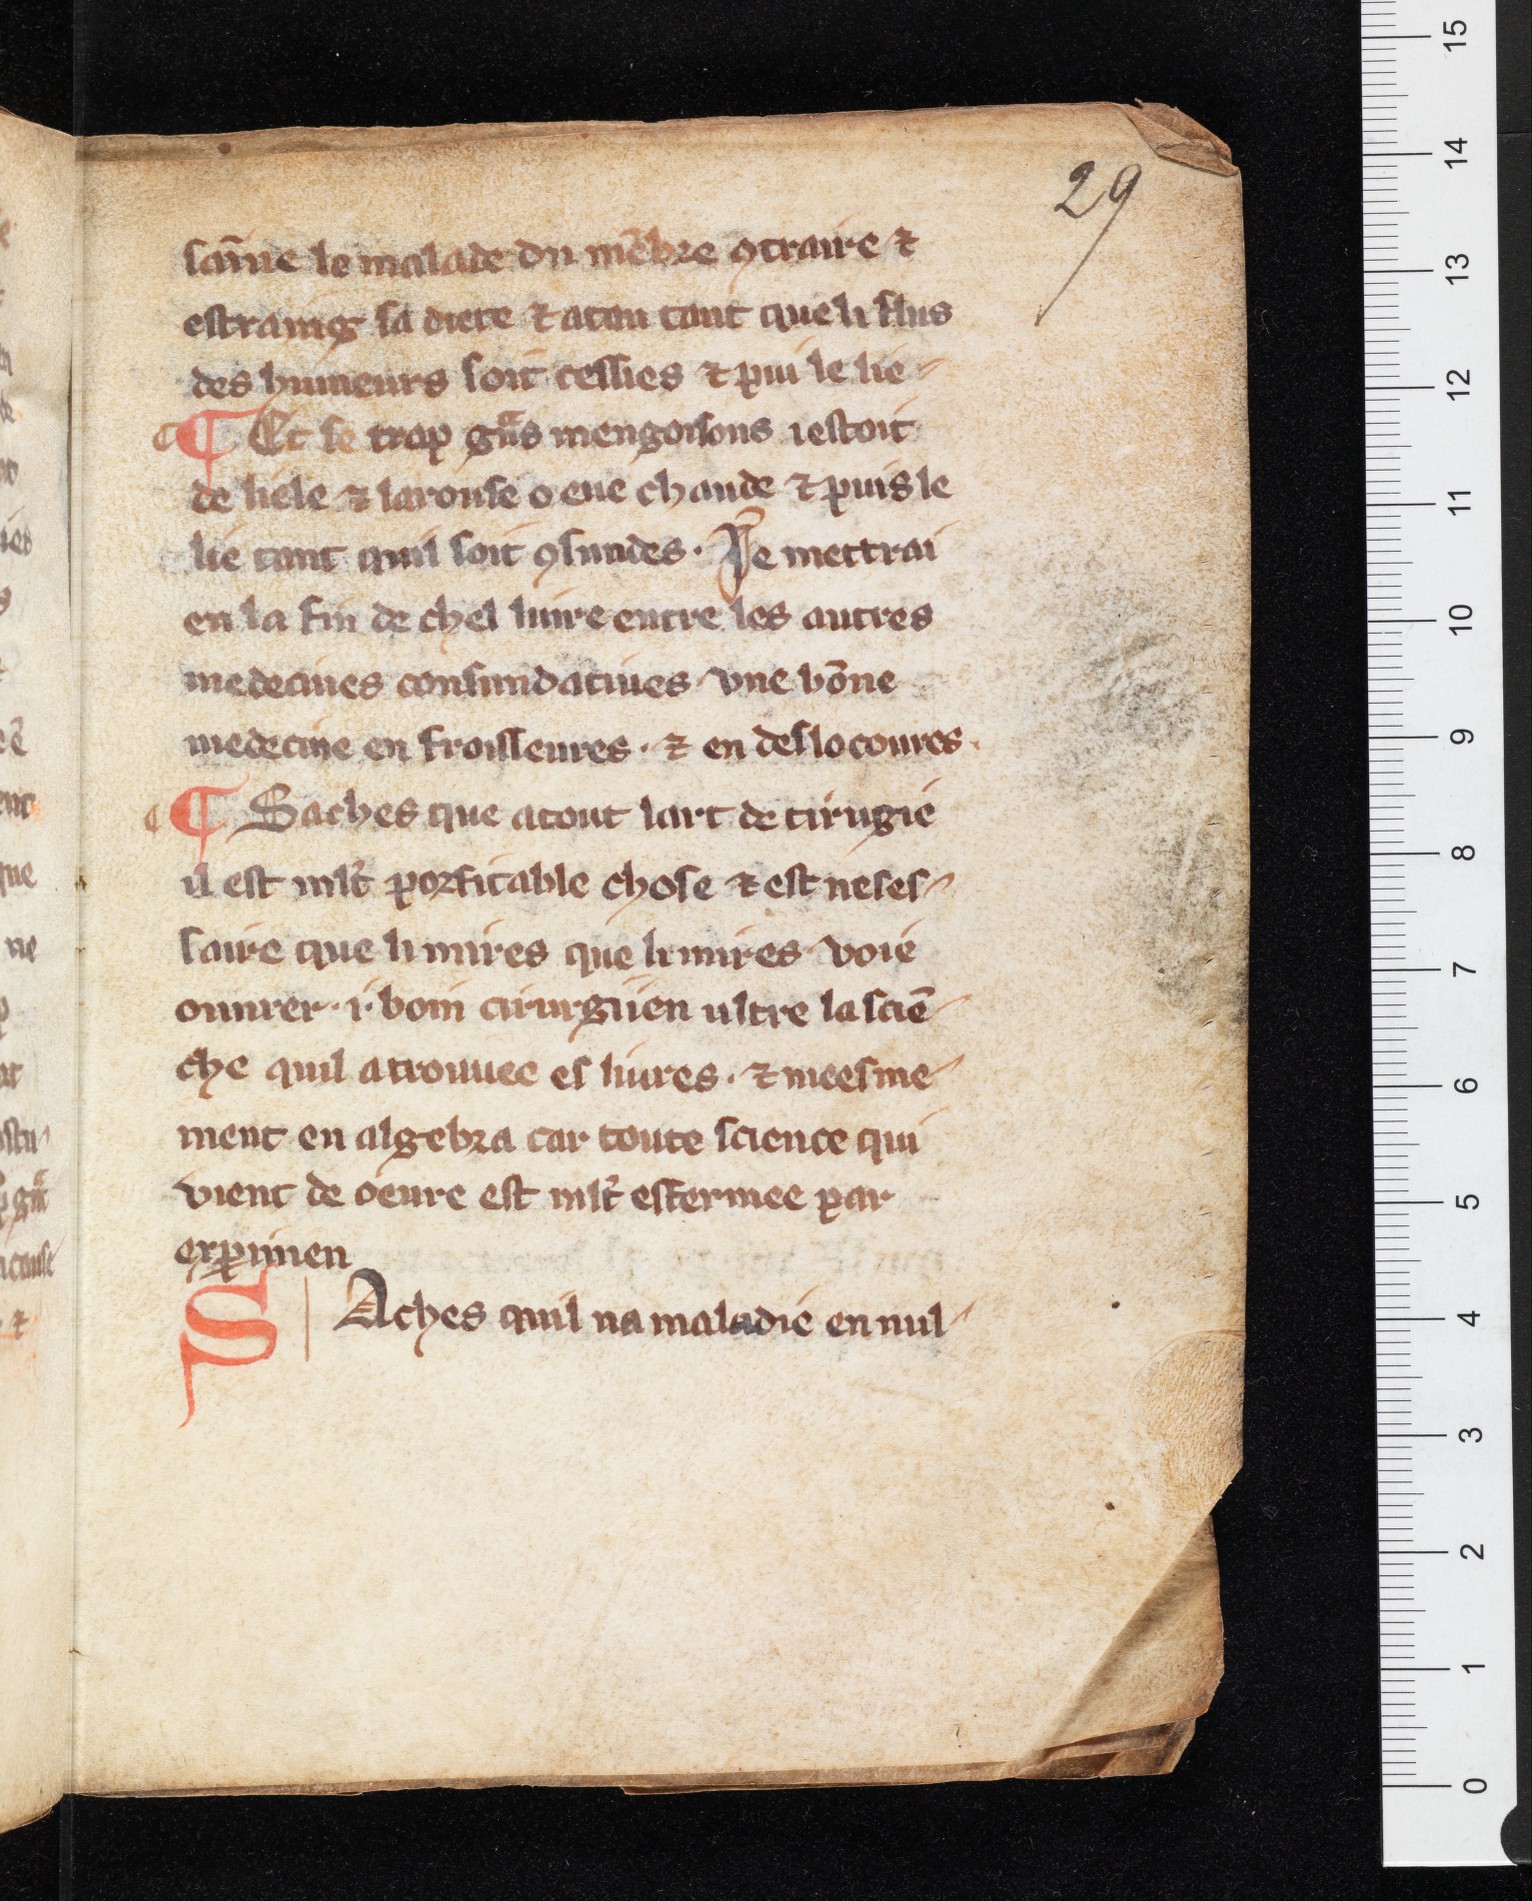 29
sāīne le malade du mēbre ꝯtraire ⁊
estraing sa diete ⁊ aten tant que li flus
des humeurs soit cessies ⁊ puis le lie
¶ Et se trop gͣns mengoisons i estoit
de liele ⁊ larouse o eue chaude ⁊ puis le
lie tant quil soit ꝯsaudes. Je mettrai
en la fin de chel liure entre les autres
medecines consaudatiues vne bōne
medecine en froisseures. ⁊ en deslocoures.
¶ Saches que a tout lart de cirugie
il est mlt̃ porfitable chose ⁊ est neses
saire que li mires que li mires voie
ouurer .i. boin cirurgiien ultre la sciē
che quil a trouuee es liures. ⁊ meesme
ment en algebra car toute science qui
vient de oeure est mlt̃ esfermee par
exꝑimen
SAches quil na maladie en nul